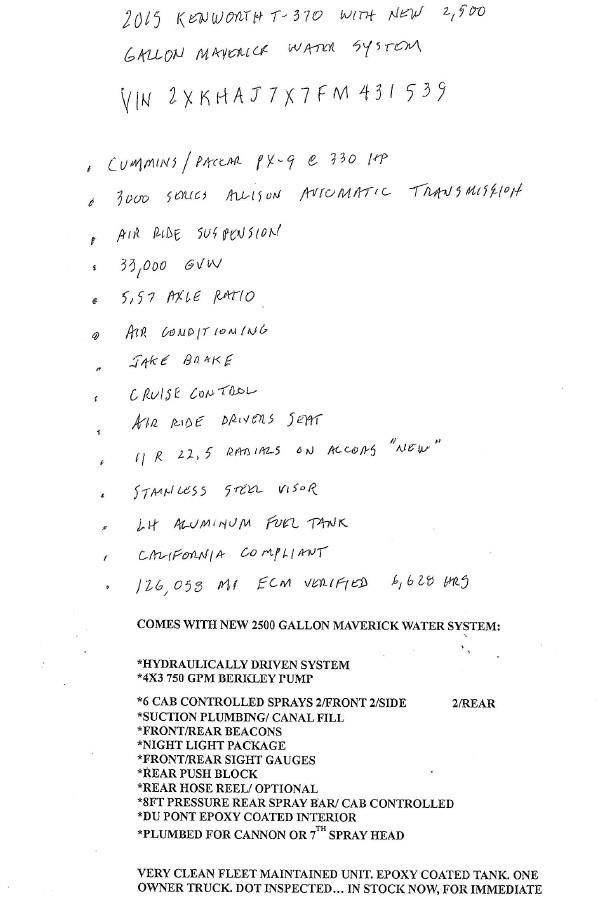 2015 KENWORTH T-370 WITH NEW 2,500
GALLON MAVERICK WATER SYSTEM
VIN 2XKHAJ7X7FM431539
• CUMMINS/PACCAR PX-9 @ 330 HP
• 3000 SERIES ALLISON AUTOMATIC TRANSMISSION
• AIR RIDE SUSPENSION
• 33,000 GVW
• 5,57 AXLE RATIO
• AIR CONDITIONING
• JAKE BRAKE
• CRUISE CONTROL
• AIR RIDE DRIVERS SEAT
• 11 R 22,5 RADIALS ON ACCORS "NEW"
• STAINLESS STEEL VISOR
• LH ALUMINUM FUEL TANK
• CALIFORNIA COMPLIANT
• 126,058 MI ECM VERIFIED 6,628 HRS
COMES WITH NEW 2500 GALLON MAVERICK WATER SYSTEM:
*HYDRAULICALLY DRIVEN SYSTEM
*4X3 750 GPM BERKLEY PUMP
*6 CAB CONTROLLED SPRAYS 2/FRONT 2/SIDE 2/REAR
*SUCTION PLUMBING/ CANAL FILL
*FRONT/REAR BEACONS
*NIGHT LIGHT PACKAGE
*FRONT/REAR SIGHT GAUGES
*REAR PUSH BLOCK
*REAR HOSE REEL/ OPTIONAL
*8FT PRESSURE REAR SPRAY BAR/ CAB CONTROLLED
*DU PONT EPOXY COATED INTERIOR
*PLUMBED FOR CANNON OR 7TH SPRAY HEAD
VERY CLEAN FLEET MAINTAINED UNIT. EPOXY COATED TANK. ONE
OWNER TRUCK. DOT INSPECTED... IN STOCK NOW, FOR IMMEDIATE